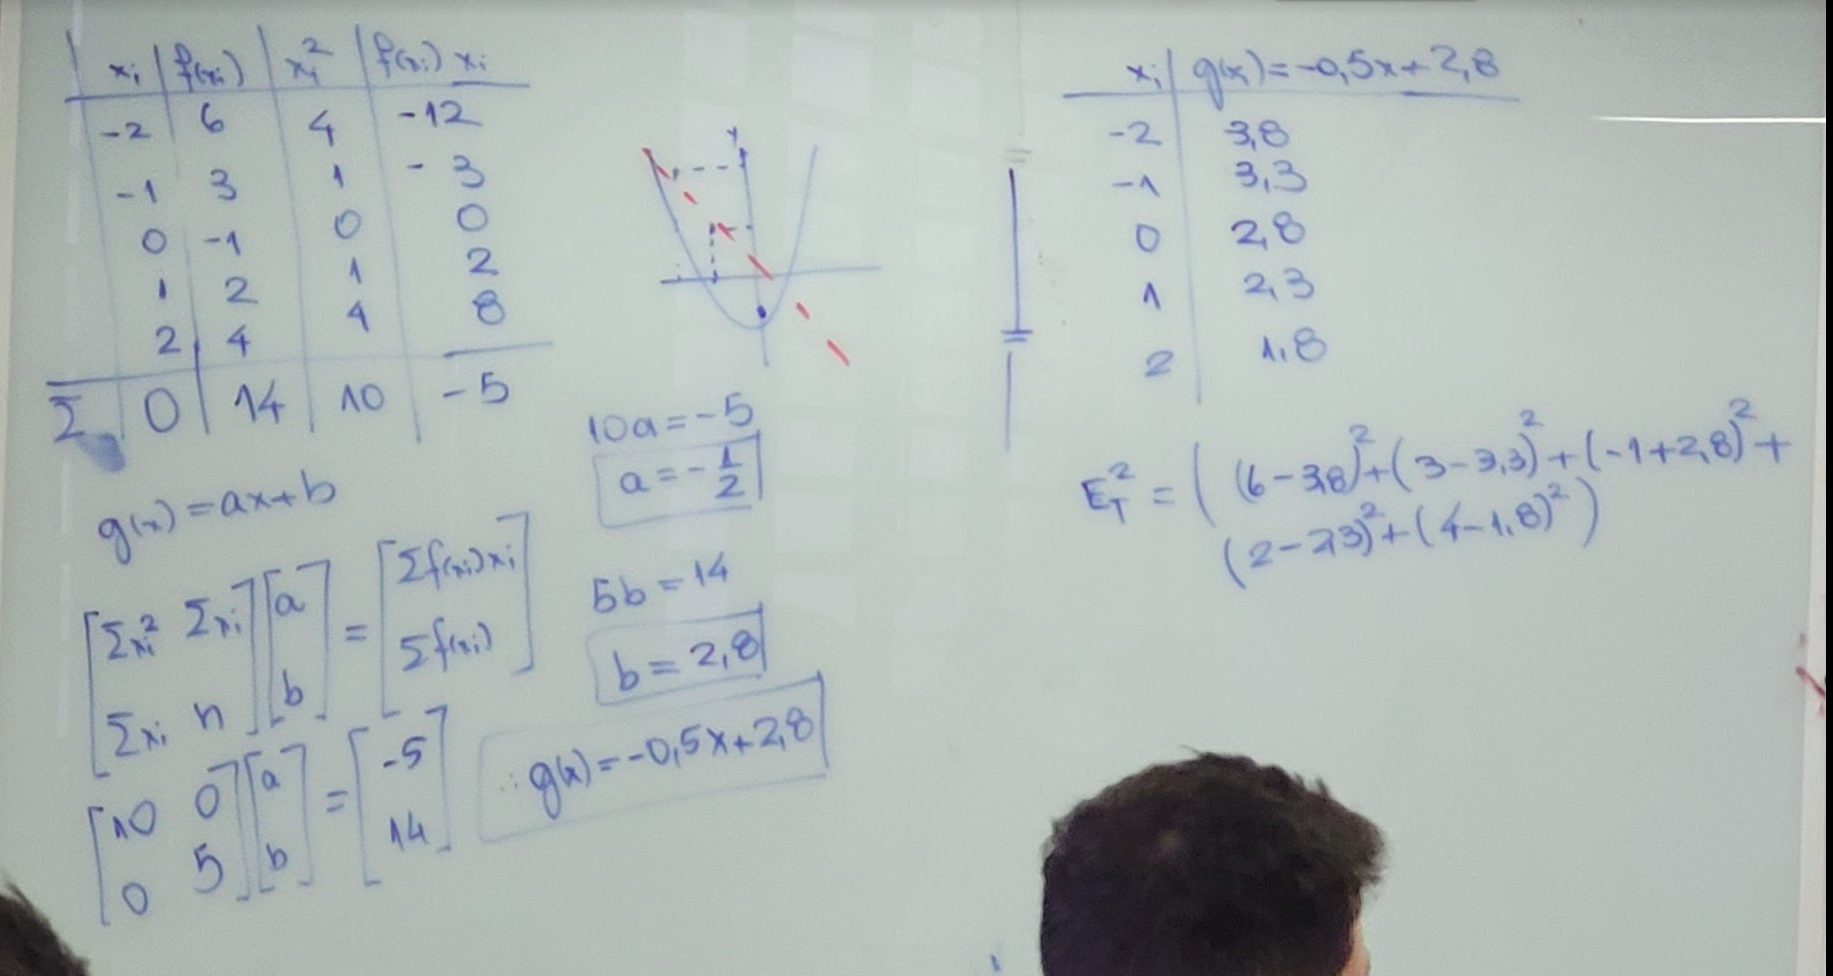 xᵢ | f(xᵢ) | xᵢ² | f(xᵢ) xᵢ
-2 | 6 | 4 | -12
-1 | 3 | 1 | -3
0 | -1 | 0 | 0
1 | 2 | 1 | 2
2 | 4 | 4 | 8
Σ | 0 | 14 | 10 | -5
g(x) = ax+b
[Σxᵢ² Σxᵢ] [a] = [Σf(xᵢ)xᵢ]
[Σxᵢ n] [b] [Σf(xᵢ)]
[10 0] [a] = [-5]
[0 5] [b] [14]
y
10a = -5
a = -1/2
5b = 14
b = 2,8
∴ g(x) = -0,5x+2,8
xᵢ | g(xᵢ) = -0,5x+2,8
-2 | 3,8
-1 | 3,3
0 | 2,8
1 | 2,3
2 | 1,8
E_T² = ( (6-3,8)² + (3-3,3)² + (-1+2,8)² +
(2-2,3)² + (4-1,8)² )